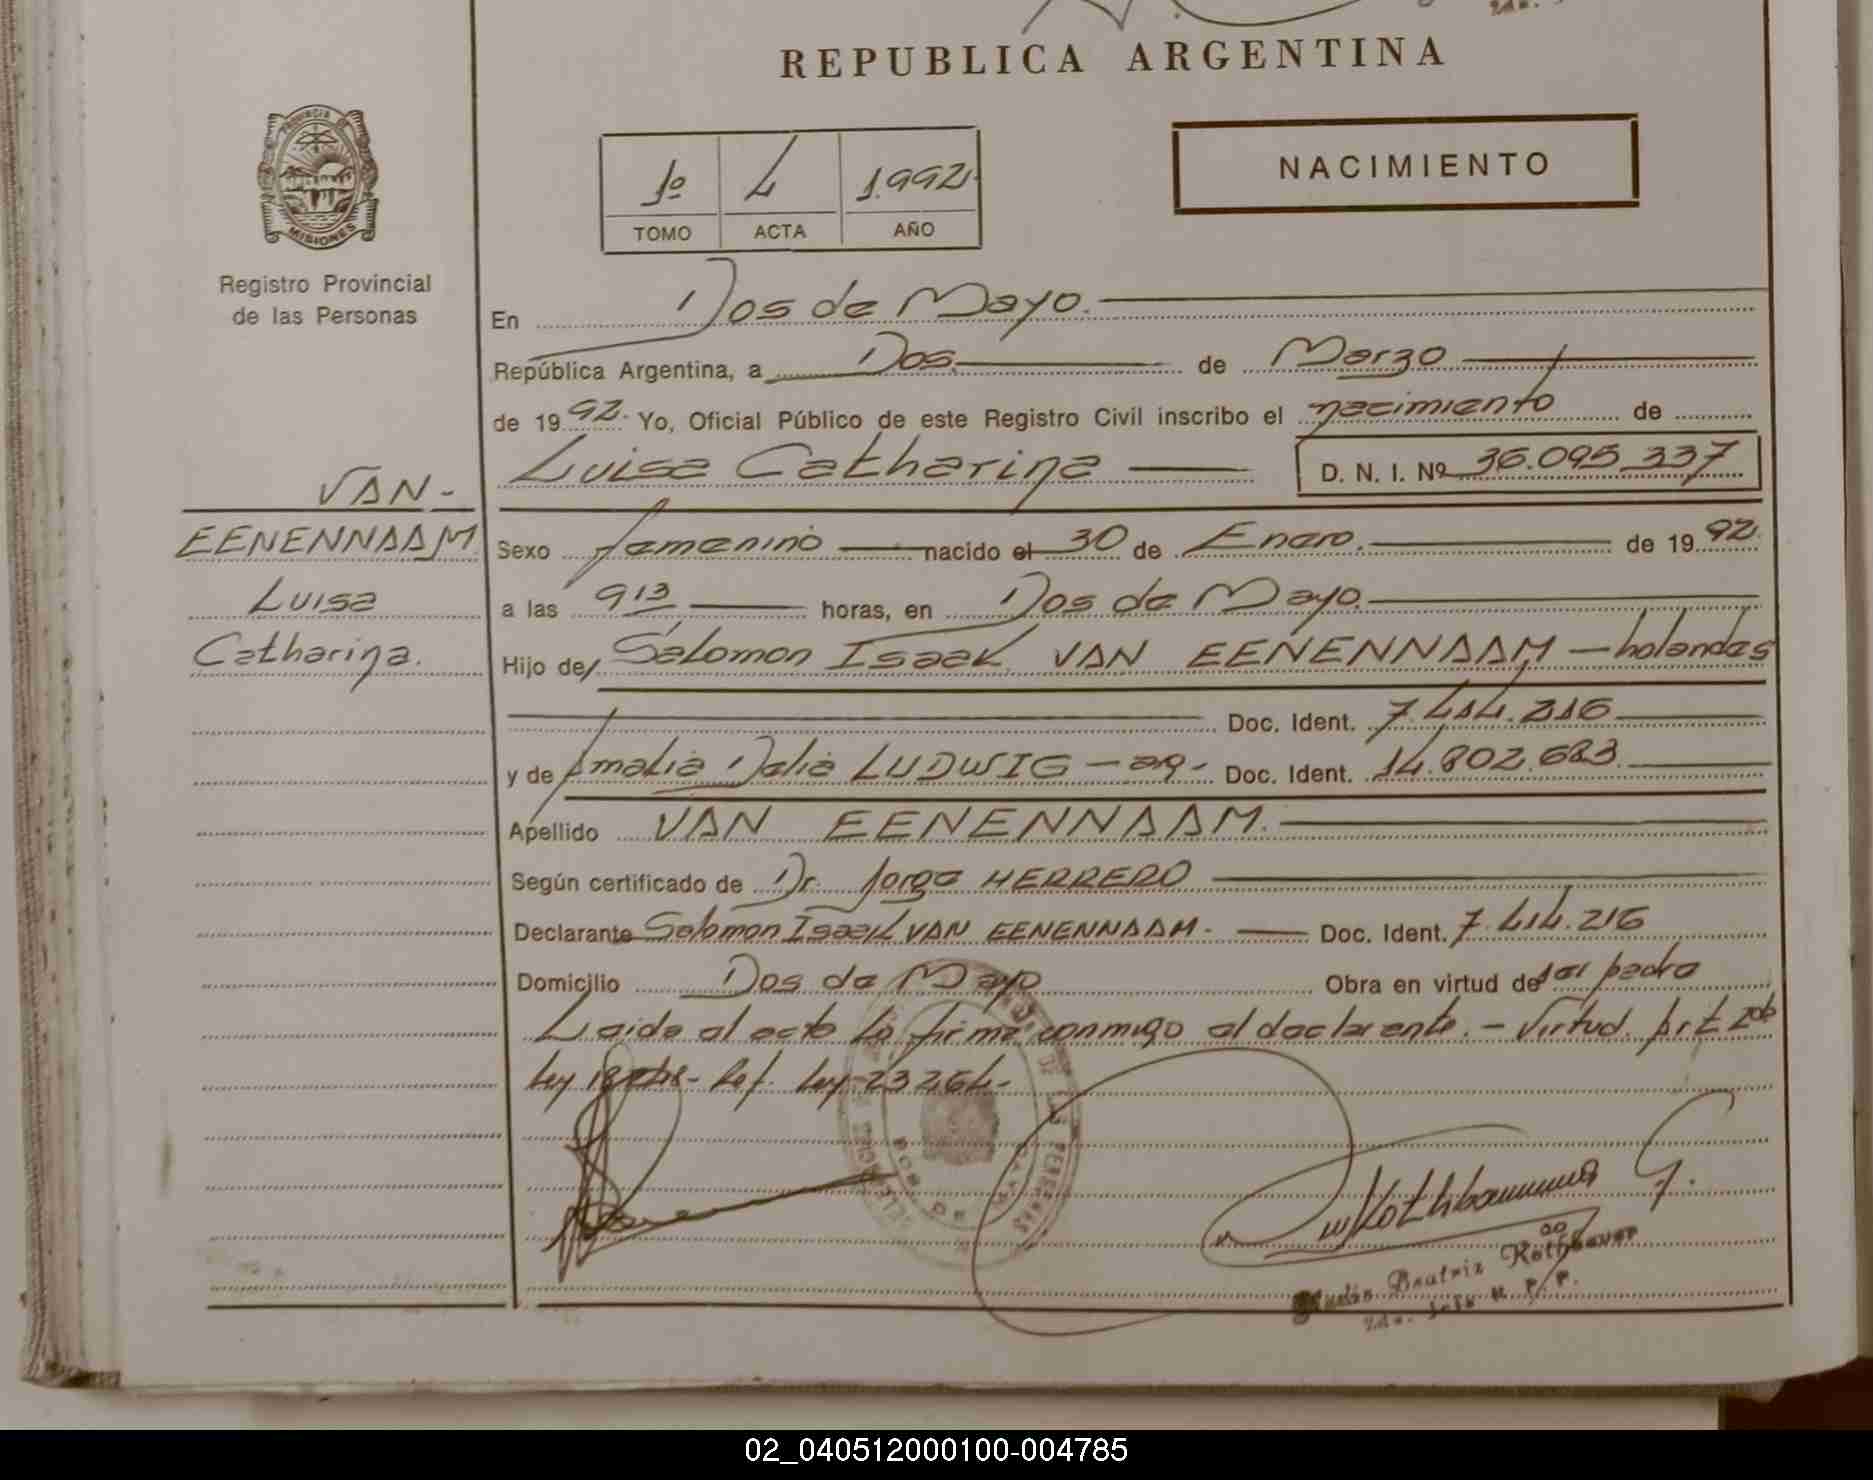 REPUBLICA ARGENTINA
PROVINCIA DE
MISIONES
Registro Provincial
de las Personas
1º 4 1.992.
TOMO ACTA AÑO
NACIMIENTO
En Dos de Mayo.
República Argentina, a Dos. de Marzo
de 1992. Yo, Oficial Público de este Registro Civil inscribo el nacimiento de
Luisa Catharina D. N. I. Nº 36.095.337
VAN-
EENENNAAM
Luisa
Catharina.
Sexo femenino nacido el 30 de Enero. de 1992.
a las 9 13 horas, en Dos de Mayo.
Hijo de Salomon Isaak VAN EENENNAAM - holandes
Doc. Ident. 7.414.216
y de Amalia Delia LUDWIG - arg- Doc. Ident. 14.802.683.
Apellido VAN EENENNAAM.
Según certificado de Dr. Jorge HERRERO
Declarante Salomon Isaak VAN EENENNAAM. Doc. Ident. 7.414.216
Domicilio Dos de Mayo Obra en virtud de ser padre
Leida el acta la firma conmigo el declarante. - Virtud. Art
Ley Ref. Ley 23264-
DE LAS PERSONAS
DOS DE MAYO
Rothbauer G.
Beatriz Rothbauer